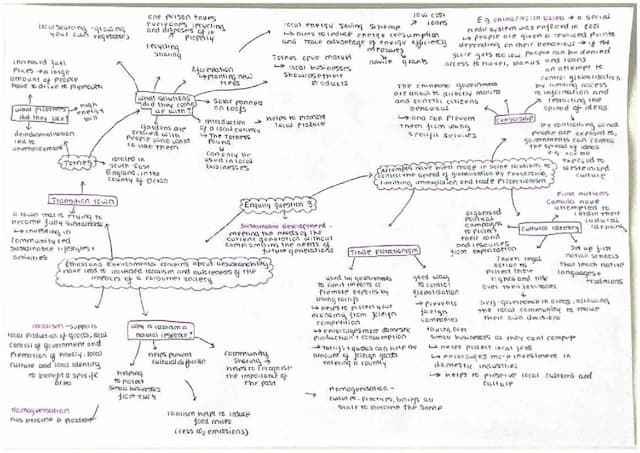 local sourcing - growing
your own
vegetables
one person takes
everyones recycling
and disposes of it
properly
recycling
sharing
local energy saving scheme
→ aims to reduce energy consumption
and take advantage of energy efficiency
measures
low cost
loans
grants
E.g
credit system was enforced in 2001
→ people are given or reduced points
depending on their behaviour → if the
score gets low people can be denied
access to travel, and loans
an attempt to
control globalisation
by limiting access
to information and
restricting the
spread of ideas
Increased fuel
prices → a large
amount of people
have to drive to Plymouth
What problems
did they face?
high
energy
bill
deindustrialisation
led to
unemployment
What solutions
did they come
up with?
Afforestation
→ planting new
trees
Solar panels
on roofs
Totnes open market
→ local businesses
showcase their
products
Introduction
of a local currency
→ The Totnes
Pound
→ helps to promote
local produce
can only be
used in local
businesses
Gardens are
shared with
people who want
to use them
Totnes
located in
South-East
England, in the
county of Devon
The Chinese government
are able to directly monitor
and control citizens
behaviour
→ and can prevent
them from using
specific services
Censorship
by controlling what
people are exposed to,
governments can control
the spread of ideas
E.g. not be
exposed to
westernised
culture
Attempts have been made in some locations to
control the spread of globalisation by censorship,
limiting immigration and trade protectionism
Transition town
a town that is trying to
become fully sustainable
→ investing in
community led
sustainable projects +
activities
Enquiry question 3
Sustainable development -
meeting the needs of the
current generation without
compromising the needs of
future generations
Ethical and Environmental concerns about unsustainability
have lead to increased localism and awareness of the
impacts of a consumer society
Trade protectionism
First nations
Canada have
attempted to
retain their
cultural
identity
Cultural identity
organised
political
campaigns
to protect
their land
and resources
from exploitation
Taken legal
action to
protect their
rights and title
over their territories
Set up first
nation schools
that teach native
languages +
traditions
Self-governance in areas, allowing
the local community to make
their own decisions
used by governments
to limit imports or
promote exports by
using tariffs
→ helps to protect your
economy from foreign
competition
→ encourages more domestic
production + consumption
→ tariffs + quotas can limit the
amount of foreign goods
entering a country
good way
to control
globalisation
→ prevents
foreign
companies
taking over
small businesses as they cant compete
→ helps protect local jobs
→ encourages more investment in
domestic industries
→ helps to preserve local customs and
culture
Localism - supports
local production of goods, local
control of government and
promotion of history, local
culture and local identity
to benefit a specific
area
Why is localism a
natural response?
helping
to protect
small businesses
from TNCs
helps prevent
cultural diffusion
community
sharing →
helps to recognise
the importance of
the past
localism helps to reduce
food miles
(less CO₂ emissions)
Homogenisation -
cultures, practices, beliefs all
start to become the same
Homogenisation
has become a problem